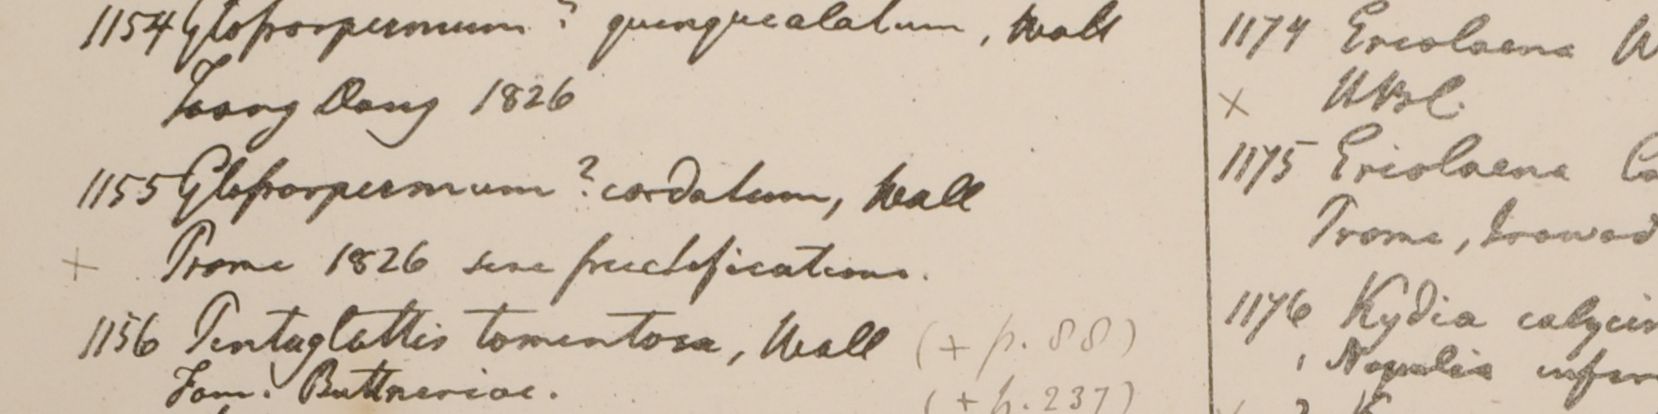 1154 Glossospermum? quinquealatum, Wall
Toong Dong 1826
1155 Glossospermum? cordatum, Wall
+ Prome 1826 sine fructificatione.
1156 Pentaglottis tomentosa, Wall (+ p. 88)
Fam. Buttneriae. (+ p. 237)
1174 Eriolaena W
× Wall.
1175 Eriolaena Ca
Prome, Irawad
1176 Kydia calycin
Napalia infer